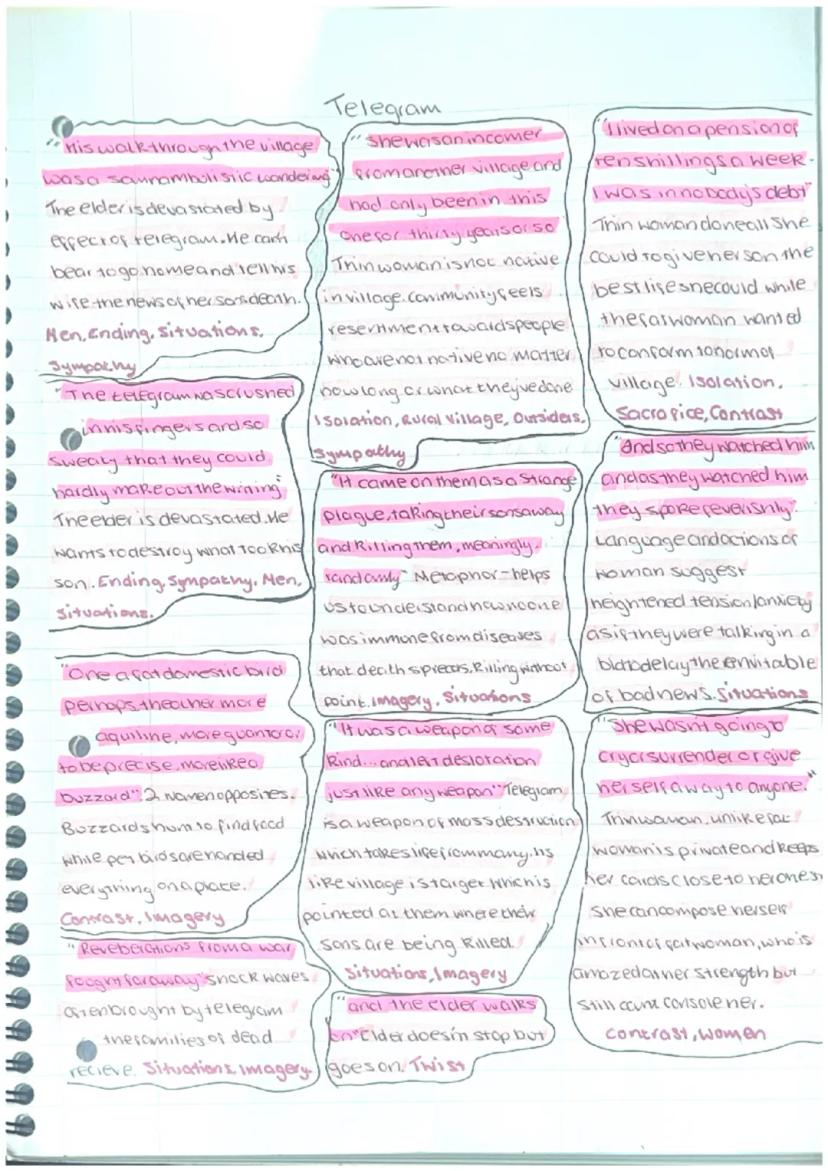 Telegram
"His walk through the village
was a somnambulistic wandering"
The elder is devastated by
effect of telegram. He can't
bear to go home and tell his
wife the news of her sons death.
Men, Ending, Situations,
Sympathy
"The telegram was crushed
in his fingers and so
sweaty that they could
hardly make out the writing"
The elder is devastated. He
wants to destroy what took his
son. Ending, Sympathy, Men,
Situations.
"One a fat domestic bird
perhaps the other more
aquiline, more guant or or
to be precise, more like a
buzzard" 2 women opposites.
Buzzards hunt to find food
while pet birds are handed
everything on a plate.
Contrast, Imagery
"Reveberations from a war
fought far away" shock waves
often brought by telegram
the families of dead
recieve. Situations, Imagery.
"She was an incomer
from another village and
had only been in this
one for thirty years or so
Thin woman is not native
in village. community feels
resentment towards people
who are not native no matter
how long or what they've done
Isolation, Rural Village, Outsiders,
Sympathy
"It came on them as a strange
plague, taking their sons away
and killing them, meaningly,
randomly" Metaphor - helps
us to understand how no one
was immune from diseases
that death spreads. Killing without
point. Imagery, Situations
"It was a weapon of some
kind... and left desloration
just like any weapon" Telegram
is a weapon of mass destruction
which takes life from many. Its
like village is target which is
pointed at them where their
sons are being killed.
Situations, Imagery
"and the elder walks
on" Elder doesn't stop but
goes on. Twist
"I lived on a pension of
ten shillings a week.
I was in nobody's debt"
Thin woman done all she
could to give her son the
best life she could while
the fat woman wanted
to conform to norm of
village. Isolation,
Sacrofice, Contrast
"And so they watched him
and as they watched him
they spoke feverishly".
Language and actions of
woman suggest
heightened tension/anxiety
as if they were talking in a
bid to delay the envitable
of bad news. Situations
"She wasn't going to
cry or surrender or give
herself away to anyone."
Thin woman, unlike fat
woman is private and keeps
her cards close to her chest
she can compose herself
in front of fat woman, who is
amazed at her strength but
still can't console her.
Contrast, Women